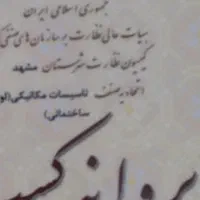 جمهوری اسلامی ایران
هیات عالی نظارت بر سازمان‌های صنفی ک
کمیسیون نظارت شهرستان مشهد
اتحادیه صنف تاسیسات مکانیکی(لو
ساختمانی)
پروانه کسب